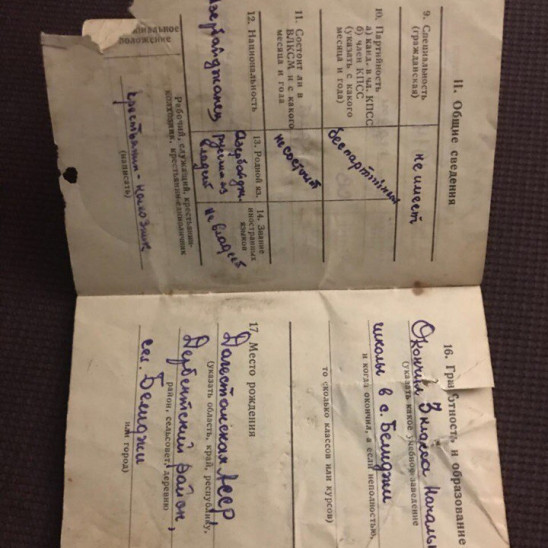 II. Общие сведения
9. Специальность
(гражданская)
не имеет
10. Партийность
а) канд. в чл. КПСС
б) член КПСС
(указать с какого
месяца и года)
беспартийный
11. Состоит ли в
ВЛКСМ и с какого
месяца и года
не состоит
12. Национальность
Азербайджанец
13. Родной яз.
Азербайдж.
русским яз
владеет
14. Знание
иностранных
языков
не владеет
положение
Рабочий, служащий, крестьянин-
(написать)
крестьянин-колхозник
16. Грамотность и образование
Окончил 3 класса Началь
(указать какое учебное заведение
школы в с. Белиджи
и когда окончил, а если неполностью,
то сколько классов или курсов)
17. Место рождения
Дагестанская АССР
(указать область, край, республику,
Дербентский район,
район, сельсовет, деревню
сел. Белиджи
или город)